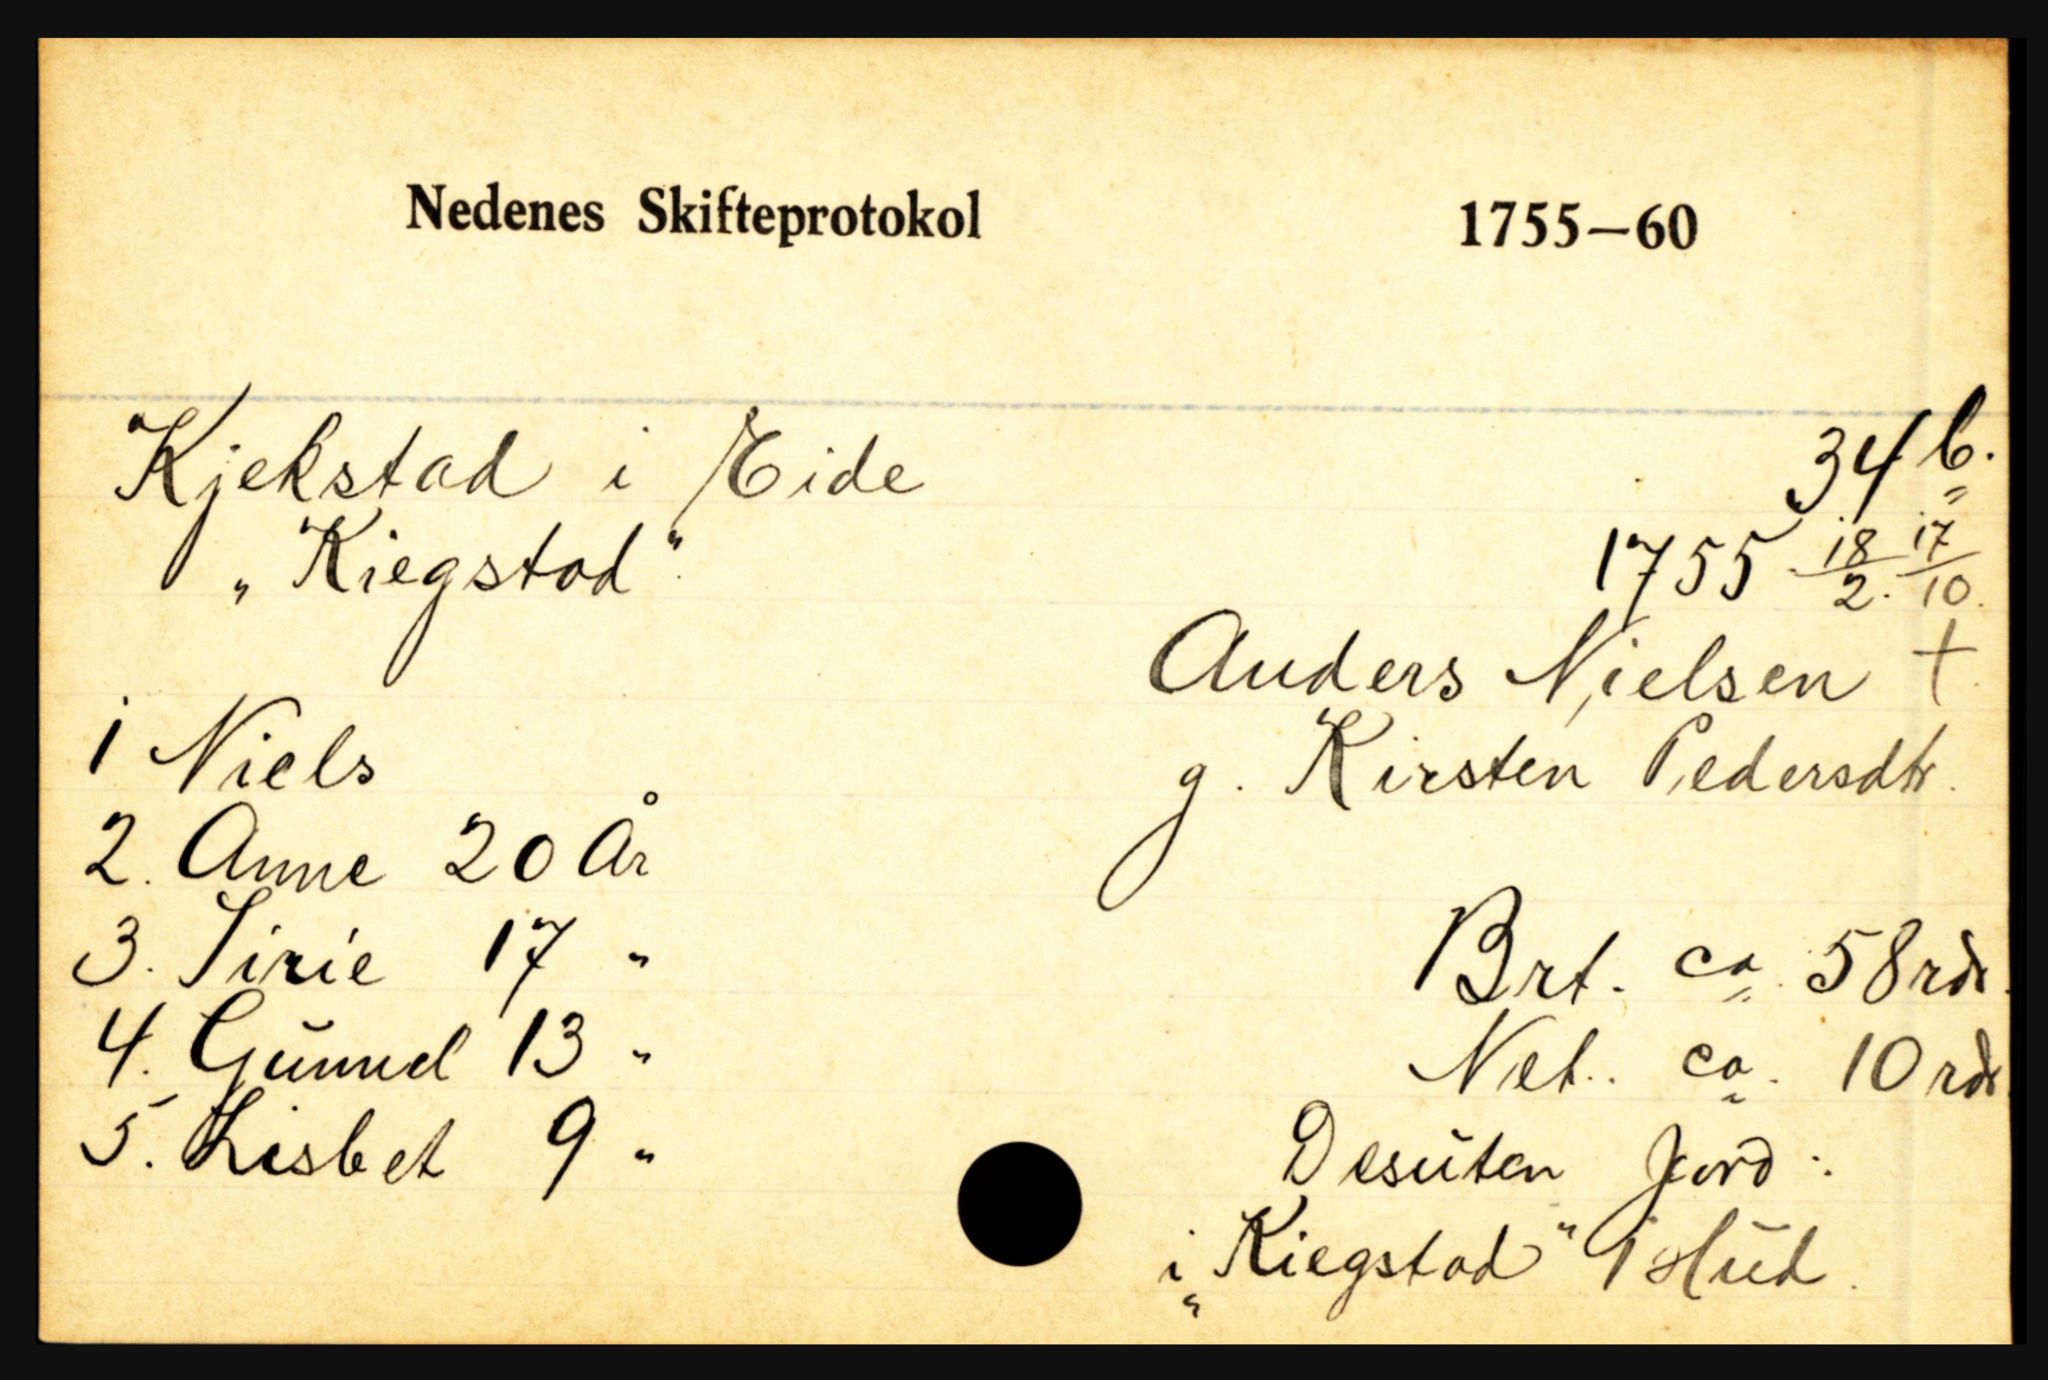 Nedenes Skifteprotokol 1755—60
Kjekstad i Eide 34 b.
„Kiegstad“ 1755 18/2. 17/10.
Anders Nielsen †
g. Kirsten Pedersdtr.
1 Niels
2. Anne 20 År
3. Sirie 17 "
4. Gunnel 13 "
5. Lisbet 9 "
Brt. ca. 58 rdr.
Net. ca. 10 rdr
Desuten Jord:
i „Kiegstad“ 1 Hud.